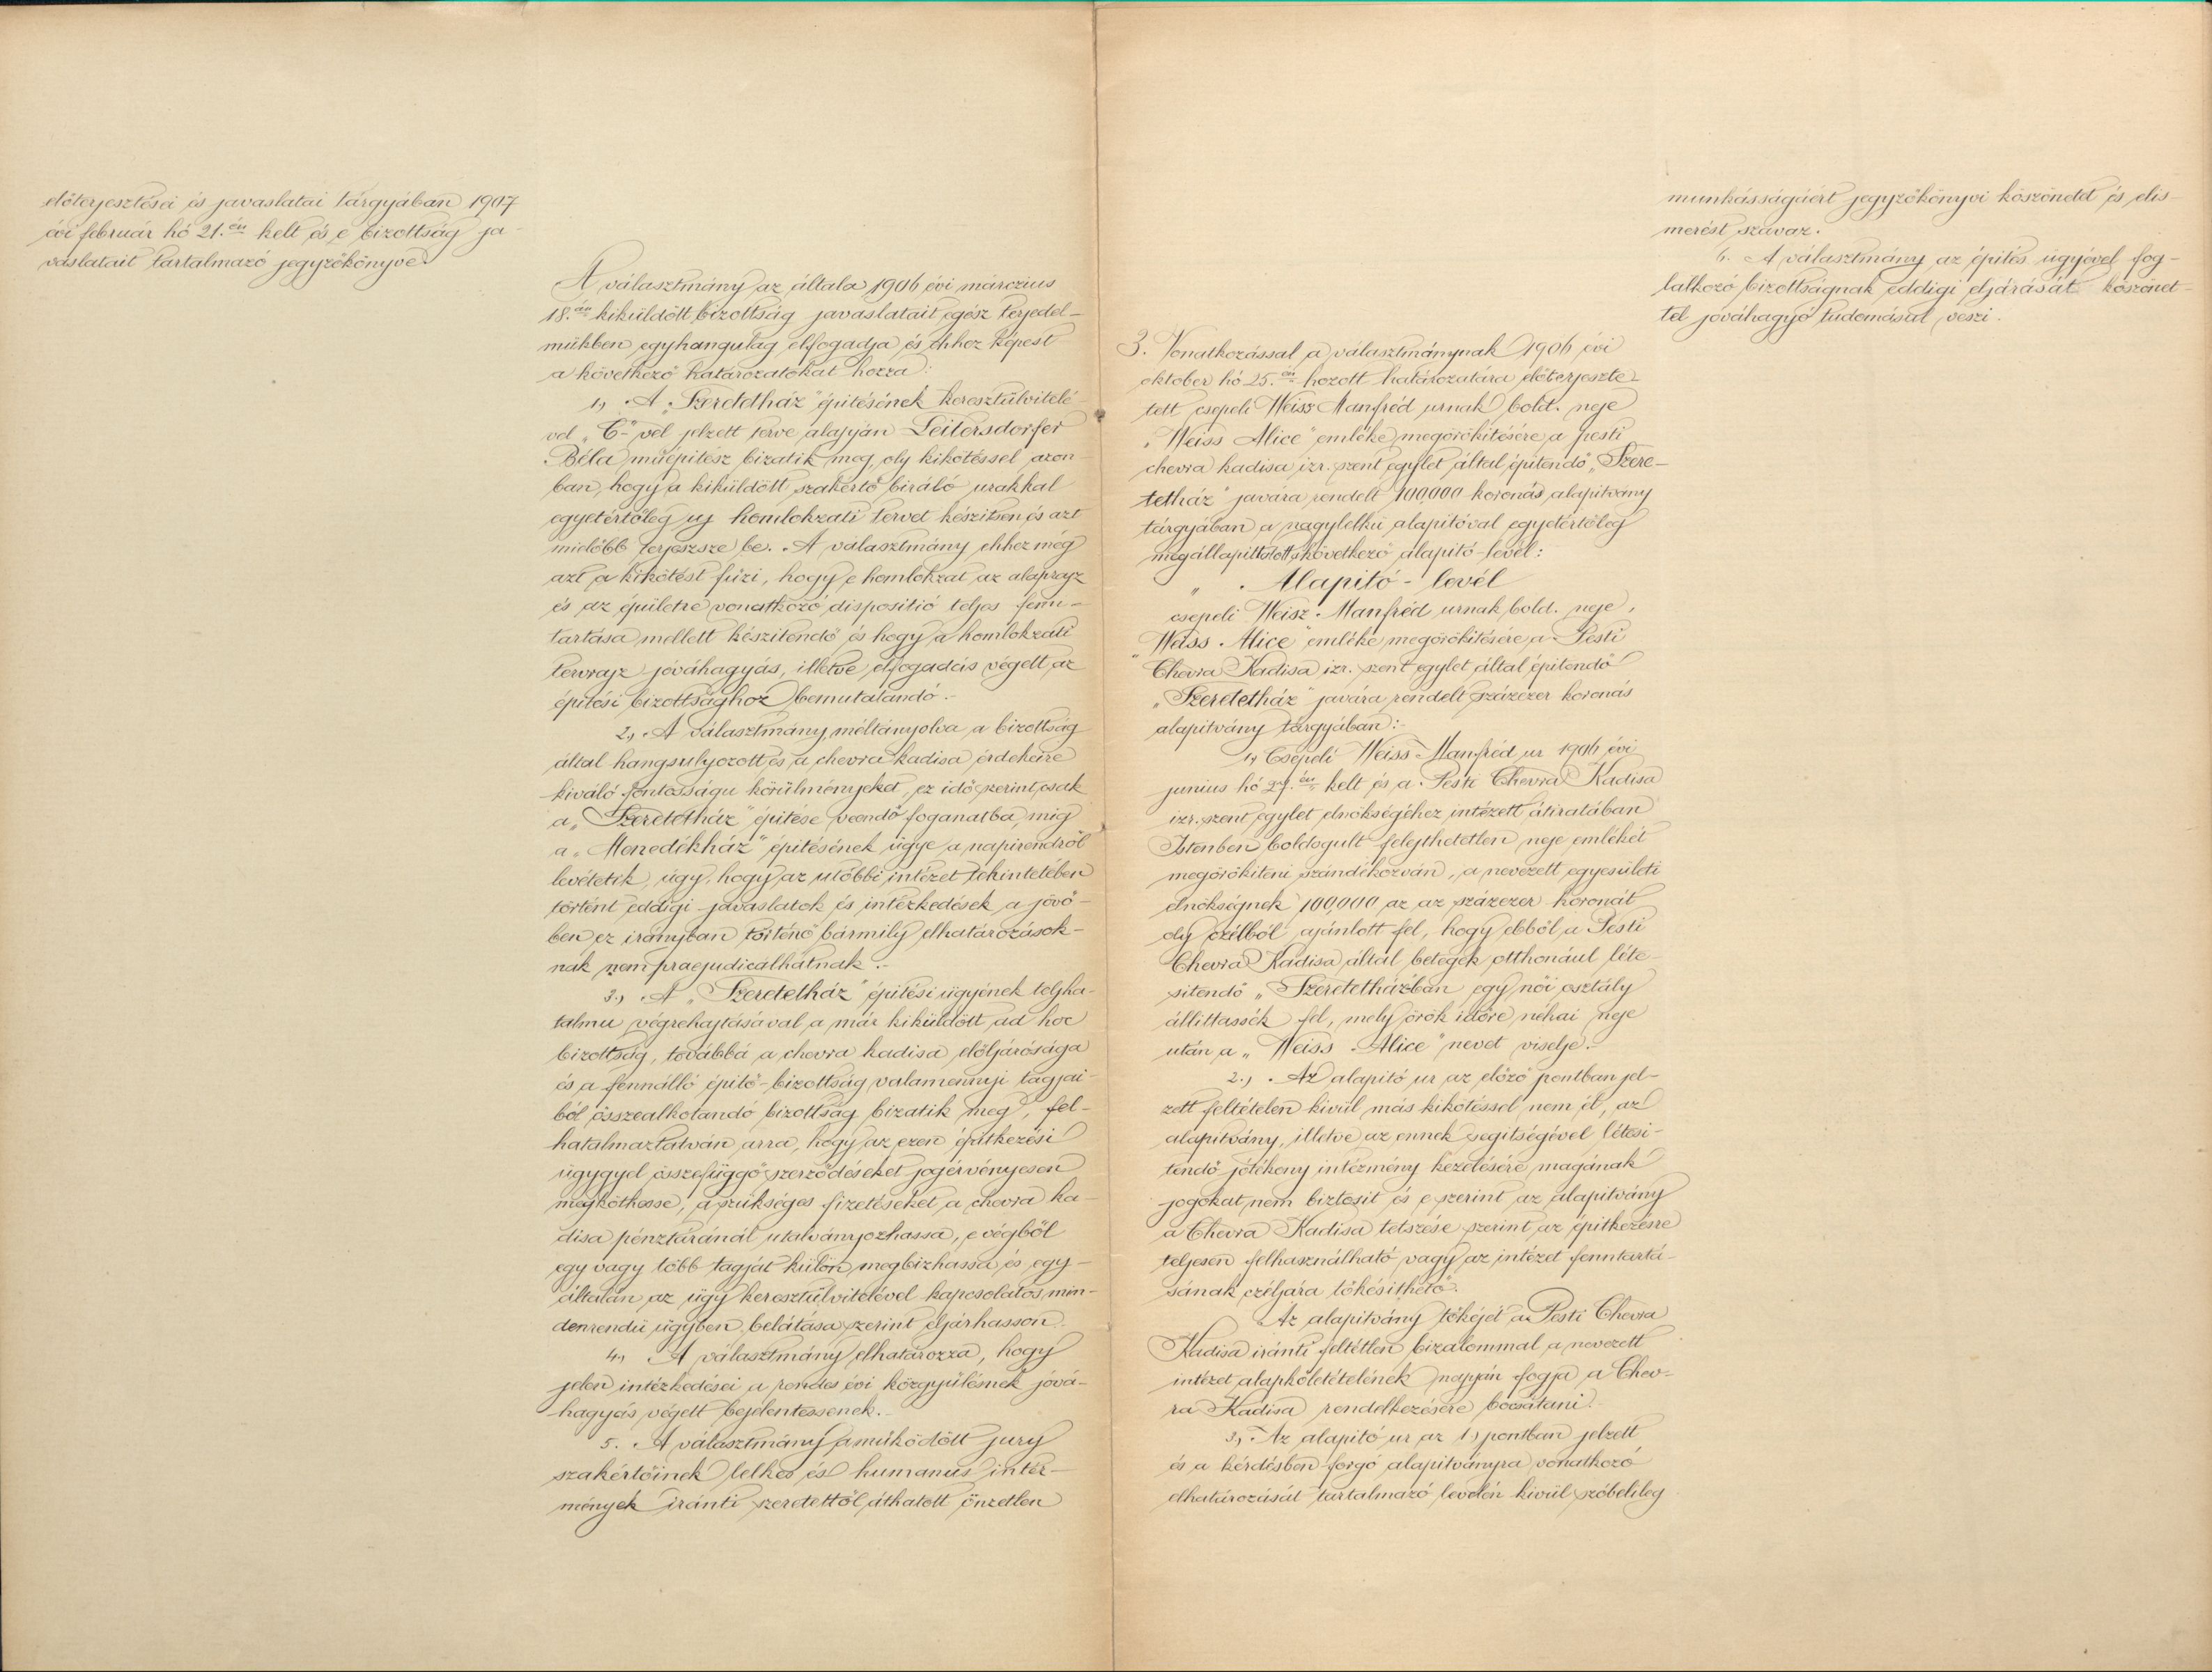 előterjesztései és javaslatai tárgyában 1907
évi február hó 21.én kelt és e bizottság ja-
vaslatait tartalmazó jegyzőkönyve.
A választmány az általa 1906 évi márczius
18.án kiküldött bizottság javaslatait egész terjedel-
mükben egyhangulag elfogadja és ehhez képest
a következő határozatokat hozza:
1., A „Szeretetház" épitésének keresztülvitelé-
vel „C"-vel jelzett terve alapján Leitersdorfer
Béla müépitész bizatik meg, oly kikötéssel azon-
ban, hogy a kiküldött szakértő biráló urakkal
egyetértőleg uj homlokzati tervet készitsen és azt
mielőbb terjeszsze be. A választmány ehhez még
azt a kikötést füzi, hogy e homlokzat az alaprajz
és az épületre vonatkozó dispositió teljes fenn-
tartása mellett készitendő és hogy a homlokzati
tervrajz jóváhagyás, illetve elfogadás végett az
épitési bizottsághoz bemutatandó.-
2., A választmány méltányolva a bizottság
által hangsulyozott és a chevra kadisa érdekeire
kiváló fontosságu körülményeket, ez idő szerint csak
a „Szeretetház" épitése veendő foganatba, mig
a „Menedékház" épitésének ügye a napirendről
levétetik, úgy, hogy az utóbbi intézet tekintetében
történt eddigi javaslatok és intézkedések a jövő-
ben ez irányban történő bármily elhatározások-
nak nem praejudicálhatnak.-
3., A „Szeretetház" épitési ügyének teljha-
talmu végrehajtásával a már kiküldött ad hoc
bizottság, továbbá a chevra kadisa előljárósága
és a fennálló épitő-bizottság valamennyi tagjai-
ból összealkotandó bizottság bizatik meg, fel-
hatalmaztatván arra, hogy az ezen épitkezési
ügygyel összefüggő szerződéseket jogérvényesen
megköthesse, a szükséges fizetéseket a chevra ka-
disa pénztáránál utalványozhassa, e végből
egy vagy több tagját külön megbizhassa és egy-
általán az ügy keresztülvitelével kapcsolatos min-
denrendü ügyben belátása szerint eljárhasson.
4., A választmány elhatározza, hogy
jelen intézkedései a rendes évi közgyülésnek jóvá-
hagyás végett bejelentessenek.-
5. A választmány a müködött jury
szakértőinek lelkes és humanus intéz-
mények iránti szeretettől áthatott önzetlen
munkásságáért jegyzőkönyvi köszönetet és elis-
merést szavaz.
6. A választmány az épités ügyével fog-
lalkozó bizottságnak eddigi eljárását köszönet-
tel jóváhagyó tudomásul veszi.
3. Vonatkozással a választmánynak 1906 évi
oktober hó 25.én hozott határozatára előterjeszte-
tett csepeli Weiss Manfréd urnak bold. neje
„Weiss Alice" emléke megörökitésére a pesti
chevra kadisa izr. szent egylet által épitendő „Szere-
tetház" javára rendelt 100,000 koronás alapitvány
tárgyában a nagylelkü alapitóval egyetértőleg
megállapittatott következő alapitó-levél:
„ Alapitó-levél
csepeli Weisz Manfréd urnak bold. neje,
„Weiss Alice" emléke megörökitésére a Pesti
Chevra Kadisa izr. szent egylet által épitendő
„Szeretetház" javára rendelt százezer koronás
alapitvány tárgyában:-
1., Csepeli Weiss Manfréd ur 1906 évi
junius hó 27.én kelt és a Pesti Chevra Kadisa
izr. szent egylet elnökségéhez intézett átiratában
Istenben boldogult felejthetetlen neje emlékét
megörökiteni szándékozván, a nevezett egyesületi
elnökségnek 100,000 az az százezer koronát
oly czélból ajánlott fel, hogy ebből a Pesti
Chevra Kadisa által betegek otthonául léte-
sitendő „Szeretetházban egy női osztály
állittassék fel, mely örök időre néhai neje
után a „Weiss Alice" nevet viselje.-
2., Az alapitó ur az előző pontban jel-
zett feltételen kivül más kikötéssel nem él, az
alapitvány, illetve az ennek segitségével létesi-
tendő jótékony intézmény kezelésére magának
jogokat nem biztosit és e szerint az alapitvány
a Chevra Kadisa tetszése szerint az épitkezésre
teljesen felhasználható vagy az intézet fenntartá-
sának czéljára tőkésithető.
Az alapitvány tőkéjét a Pesti Chevra
Kadisa iránti feltétlen bizalommal a nevezett
intézet alapkőletételének napján fogja a Chev-
ra Kadisa rendelkezésére bocsátani.
3., Az alapitó ur az 1., pontban jelzett
és a kérdésben forgó alapitványra vonatkozó
elhatározását tartalmazó levelén kivül szóbelileg